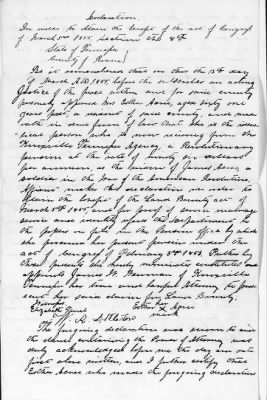 Declaration.
In order to obtain the benefit of the act of Congress
of March 3rd 1855. Section
State of Tennessee
County of
Be it remembered that on this the 12th day
of March A.D. 1855, before the subscriber an acting
Justice of the Peace within and for said county
personly appeared Mrs Esther Acre, aged sixty one
years past, a resident of said County, and made
oath in due form of law that she is the iden-
tical person who is now receiving from the
Knoxville Tennessee Agency, a Revolutionary
pension at the rate of dollars
per annum, as the widow of Acre, a
soldier in the War of the American Revolution.
Affiant makes this declaration in order to
obtain the benefit of the Land Bounty act of
March 3rd 1855, and for proof of service marriage
&c she refers to the Department to
the papers on file in the Pension office by which
she procured her present pension under the
act of Congress of February 3rd 1853. Further by
these presents she hereby nominates constitutes and
appoints James H. of Knoxville
Tennessee her true and lawful Attorney to prose-
cute her said claim for Land Bounty.
her
Elizabeth Esther X Acre
mark
The foregoing declaration was sworn to and
the clause containing the Power of Attorney was
duly acknowledged before me the day and date
first above written, and I further certify that
Esther Acre who made the foregoing declaration